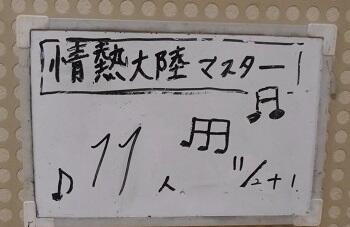 情熱大陸マスター
♪ 11人 11/2+1